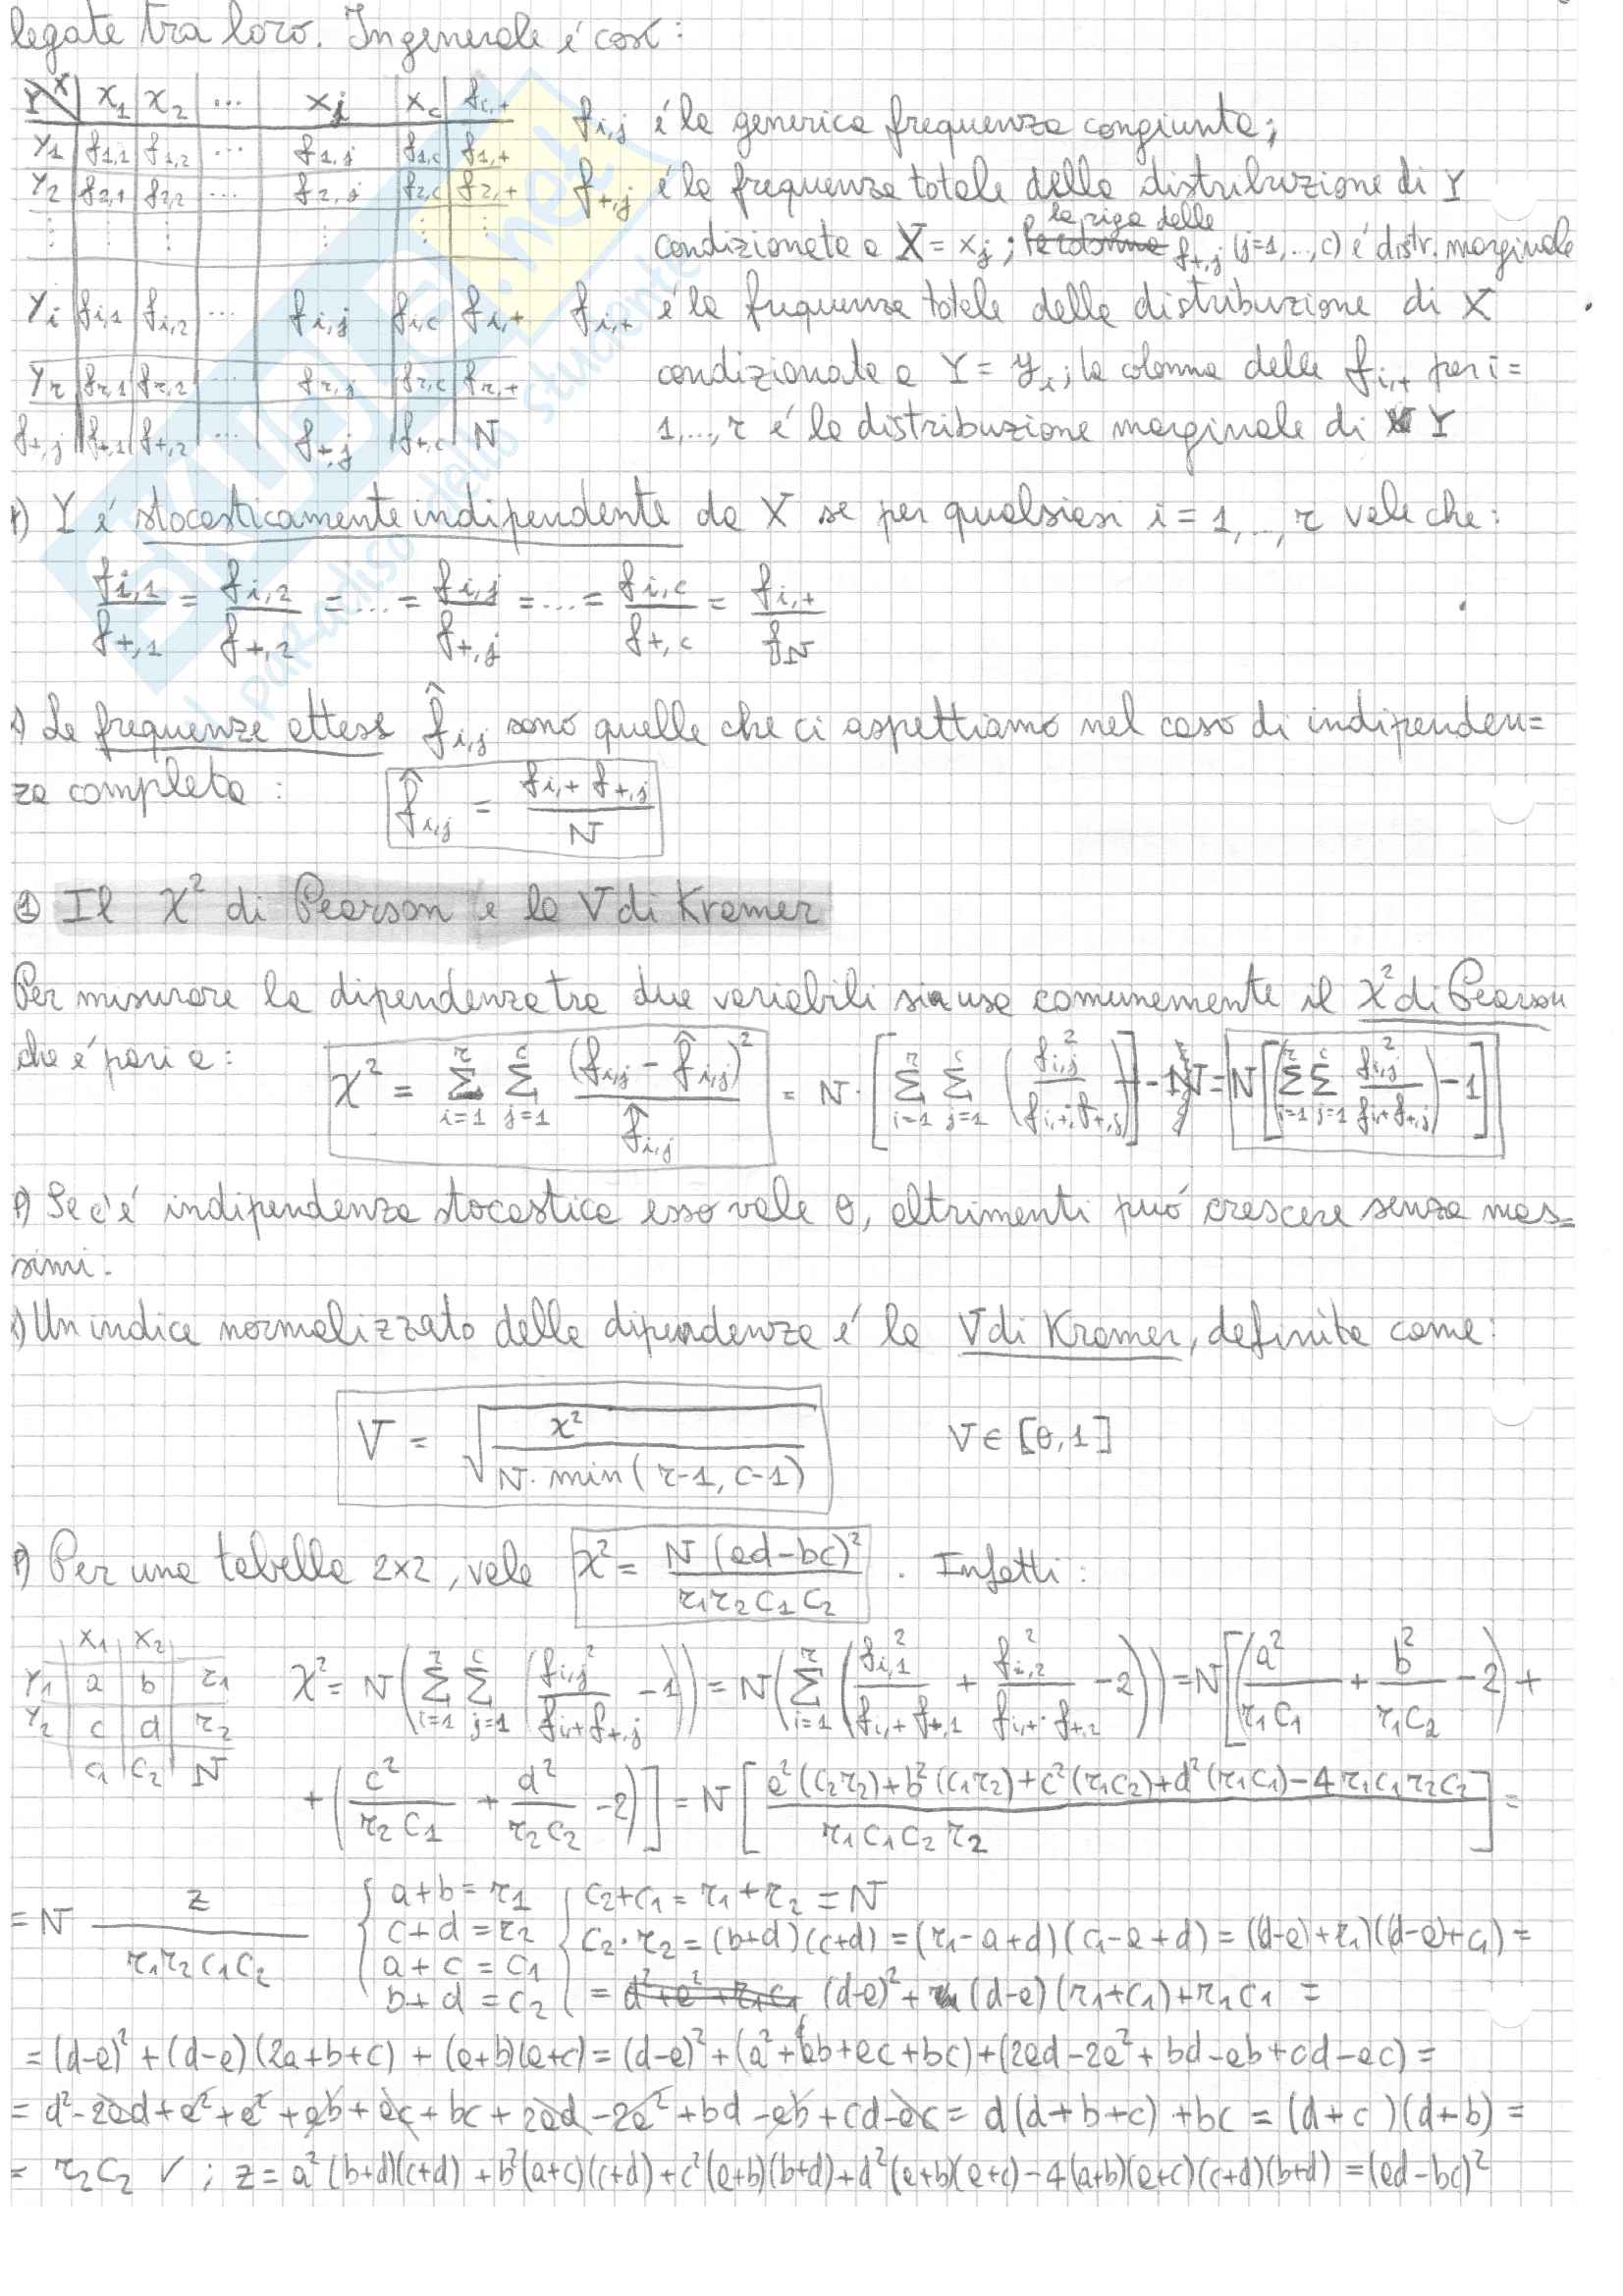 legate tra loro. In generale é cosí:
Y X | x1 | x2 | ... | xj | xc | fi,+
Y1 | f1,1 | f1,2 | ... | f1,j | f1,c | f1,+
Y2 | f2,1 | f2,2 | ... | f2,j | f2,c | f2,+
⋮ ⋮ ⋮ ⋮ ⋮ ⋮
Yi | fi,1 | fi,2 | ... | fi,j | fi,c | fi,+
Yr | fr,1 | fr,2 | ... | fr,j | fr,c | fr,+
f+,j | f+,1 | f+,2 | ... | f+,j | f+,c | N
fi,j é la generica frequenza congiunta;
f+,j é la frequenza totale della distribuzione di Y
condizionata a X = xj; la riga delle f+,j (j=1,..,c) é distr. marginale
fi,+ é la frequenza totale della distribuzione di X
condizionata a Y = yi; la colonna delle fi,+ per i=
1,..., r é la distribuzione marginale di Y
•) Y é stocasticamente indipendente da X se per qualsiasi i = 1,..., r vale che:
fi,1/f+,1 = fi,2/f+,2 = ... = fi,j/f+,j = ... = fi,c/f+,c = fi,+/N
•) Le frequenze attese f̂i,j sono quelle che ci aspettiamo nel caso di indipenden=
za completa: f̂i,j = fi,+ f+,j / N
① Il χ² di Pearson e la V di Kramer
Per misurare la dipendenza tra due variabili si usa comunemente il χ² di Pearson
che é pari a: χ² = Σ(i=1..r) Σ(j=1..c) (fi,j - f̂i,j)² / f̂i,j = N·[Σ(i=1..r) Σ(j=1..c) (fi,j² / fi,+·f+,j)] - N = N[Σ(i=1..r) Σ(j=1..c) (fi,j² / fi,+ f+,j) - 1]
•) Se c'é indipendenza stocastica esso vale 0, altrimenti puó crescere senza mas=
simi.
•) Un indice normalizzato della dipendenza é la V di Kramer, definita come:
V = √(χ² / N· min(r-1, c-1)) V ∈ [0,1]
•) Per una tabella 2x2, vale χ² = N (ad-bc)² / r1 r2 c1 c2 . Infatti:
x1 | x2
Y1 | a | b | r1
Y2 | c | d | r2
c1 | c2 | N
χ² = N(Σ(i=1..r) Σ(j=1..c) (fi,j² / fi,+ f+,j - 1)) = N(Σ(i=1..r) (fi,1² / fi,+ f+,1 + fi,2² / fi,+· f+,2 - 2)) = N[(a²/r1c1 + b²/r1c2 - 2) +
+ (c²/r2c1 + d²/r2c2 - 2)] = N[a²(c2r2) + b²(c1r2) + c²(r1c2) + d²(r1c1) - 4r1c1r2c2 / r1c1c2r2] =
= N z / r1r2c1c2 { a+b = r1 c+d = r2 a+c = c1 b+d = c2 { c2+c1 = r1+r2 = N
c2·r2 = (b+d)(c+d) = (r1-a+d)(c1-a+d) = ((d-a)+r1)((d-a)+c1) =
= (d-a)² + (d-a)(r1+c1) + r1c1 =
= (d-a)² + (d-a)(2a+b+c) + (a+b)(a+c) = (d-a)² + (a²+ab+ac+bc) + (2ad-2a²+bd-ab+cd-ac) =
= d²-2ad+a²+a²+ab+ac+bc+2ad-2a²+bd-ab+cd-ac = d(d+b+c)+bc = (d+c)(d+b) =
= r2c2 ✓ ; z = a²(b+d)(c+d) + b²(a+c)(c+d) + c²(a+b)(b+d) + d²(a+b)(a+c) - 4(a+b)(a+c)(c+d)(b+d) = (ad-bc)²